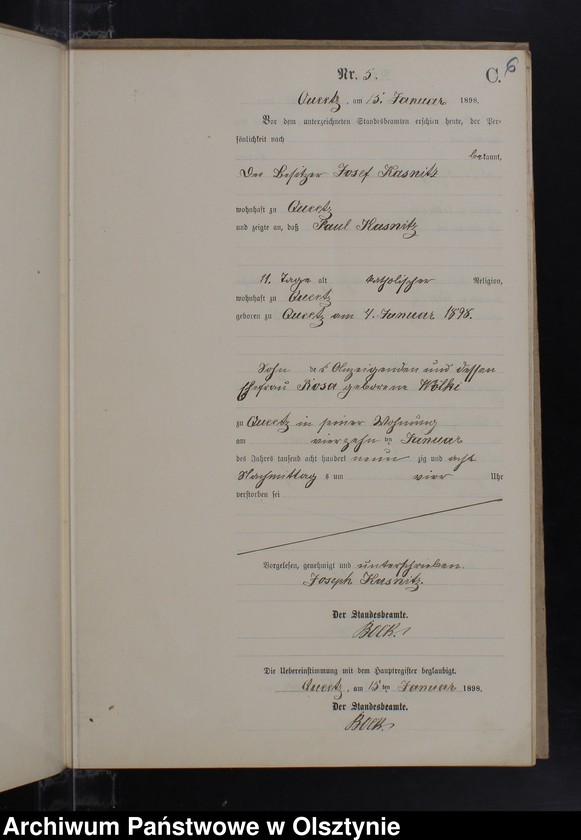 Nr. 5.
C. 6
Queetz, am 15. Januar 1898.
Vor dem unterzeichneten Standesbeamten erschien heute, der Per-
sönlichkeit nach
bekannt,
Der Besitzer Josef Kasnitz
wohnhaft zu Queetz
und zeigte an, daß Paul Kasnitz
11. Tage alt katholischer Religion,
wohnhaft zu Queetz
geboren zu Queetz am 4. Januar 1898.
Sohn des Anzeigenden und dessen
Ehefrau Rosa geborene Wölki
zu Queetz in seiner Wohnung
am vierzehnten Januar
des Jahres tausend acht hundert neun zig und acht
Nachmittags um vier Uhr
verstorben sei
Vorgelesen, genehmigt und unterschrieben.
Joseph Kasnitz.
Der Standesbeamte.
Die Uebereinstimmung mit dem Hauptregister beglaubigt.
Queetz, am 15ten Januar 1898.
Der Standesbeamte.
Archiwum Państwowe w Olsztynie